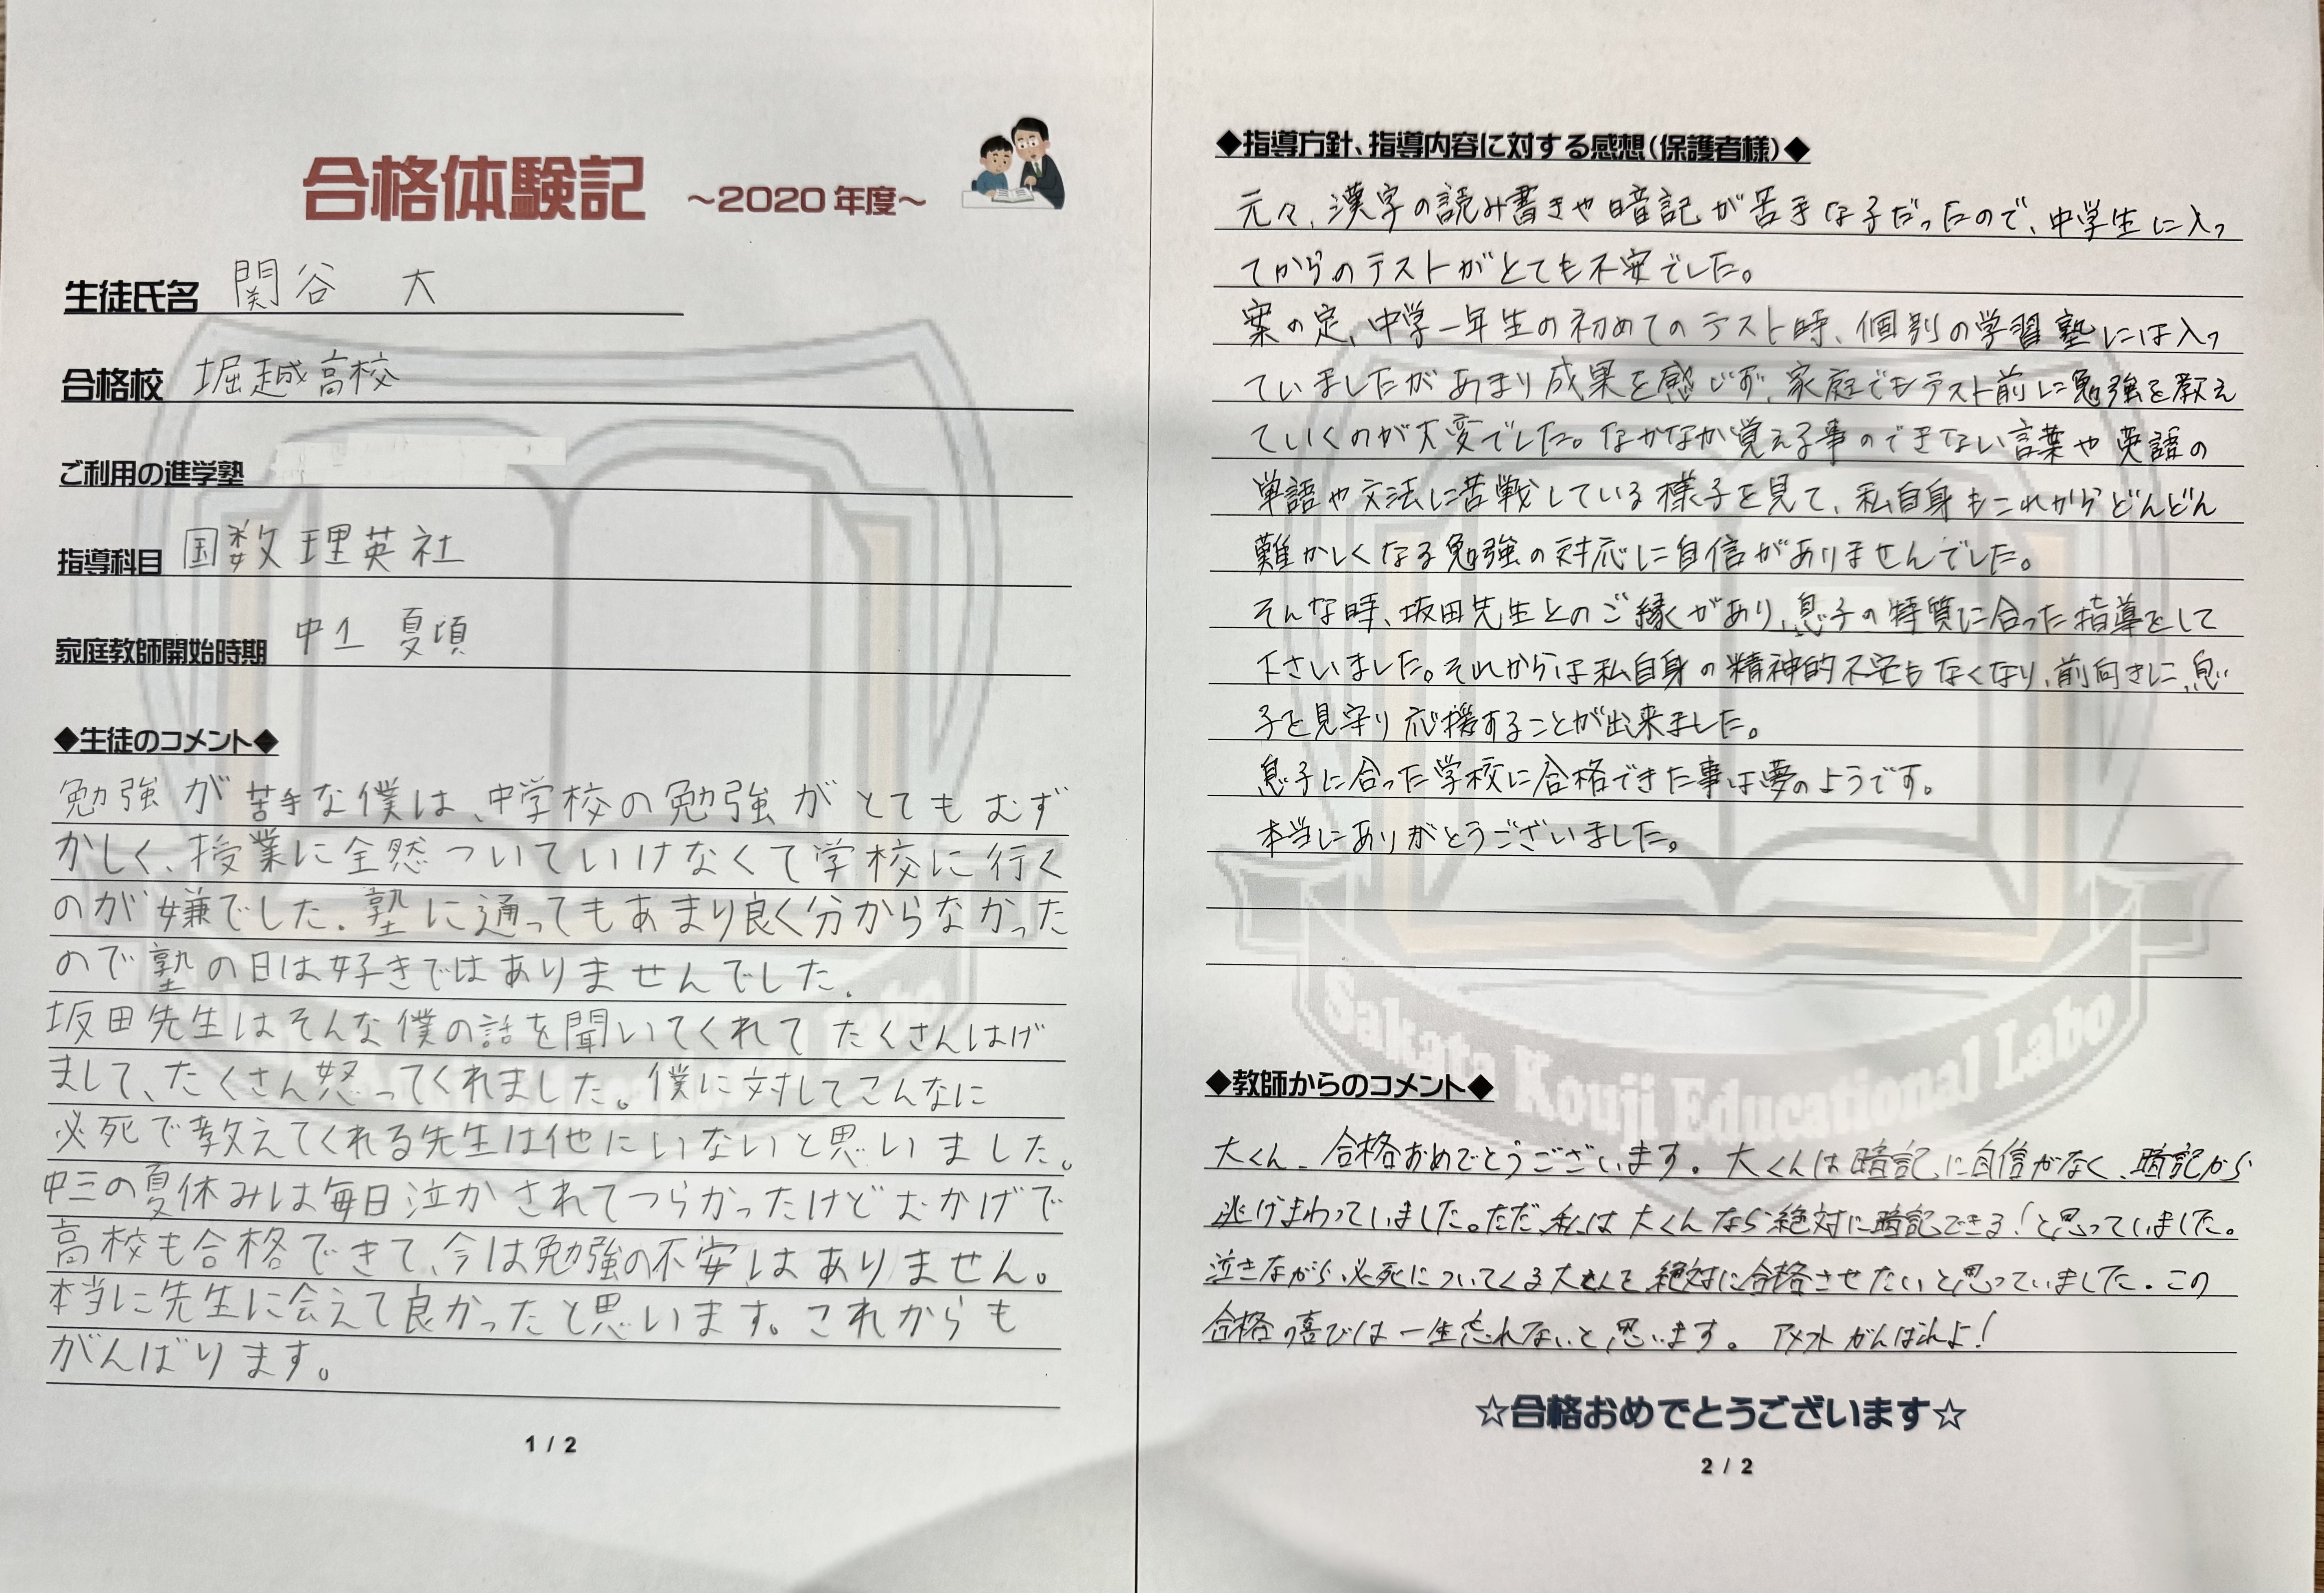 合格体験記 ～2020年度～
生徒氏名 関谷 大
合格校 堀越高校
ご利用の進学塾
指導科目 国数理英社
家庭教師開始時期 中1 夏頃
◆生徒のコメント◆
勉強が苦手な僕は、中学校の勉強がとてもむず
かしく、授業に全然ついていけなくて学校に行く
のが嫌でした。塾に通ってもあまり良く分からなかった
ので塾の日は好きではありませんでした。
坂田先生はそんな僕の話を聞いてくれてたくさんはげ
まして、たくさん怒ってくれました。僕に対してこんなに
必死で教えてくれる先生は他にいないと思いました。
中三の夏休みは毎日泣かされてつらかったけどおかげで
高校も合格できて、今は勉強の不安はありません。
本当に先生に会えて良かったと思います。これからも
がんばります。
1 / 2
◆指導方針、指導内容に対する感想(保護者様)◆
元々、漢字の読み書きや暗記が苦手な子だったので、中学生に入っ
てからのテストがとても不安でした。
案の定、中学一年生の初めてのテスト時、個別の学習塾には入っ
ていましたがあまり成果を感じず、家庭でもテスト前に勉強を教え
ていくのが大変でした。なかなか覚える事のできない言葉や英語の
単語や文法に苦戦している様子を見て、私自身もこれからどんどん
難かしくなる勉強の対応に自信がありませんでした。
そんな時、坂田先生とのご縁があり、息子の特質に合った指導をして
下さいました。それからは私自身の精神的不安もなくなり、前向きに、息
子を見守り応援することが出来ました。
息子に合った学校に合格できた事は夢のようです。
本当にありがとうございました。
Sakata Kouji Educational Labo
◆教師からのコメント◆
大くん、合格おめでとうございます。大くんは暗記に自信がなく、暗記から
逃げまわっていました。ただ私は大くんなら絶対に暗記できる！と思っていました。
泣きながら必死についてくる大くんを絶対に合格させたいと思っていました。この
合格の喜びは一生忘れないと思います。アメフトがんばれよ！
☆合格おめでとうございます☆
2 / 2